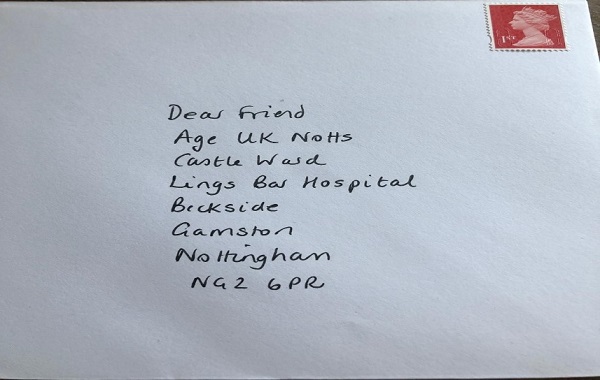 1ST
Dear Friend
Age UK Notts
Castle Ward
Lings Bar Hospital
Beckside
Gamston
Nottingham
NG2 6PR